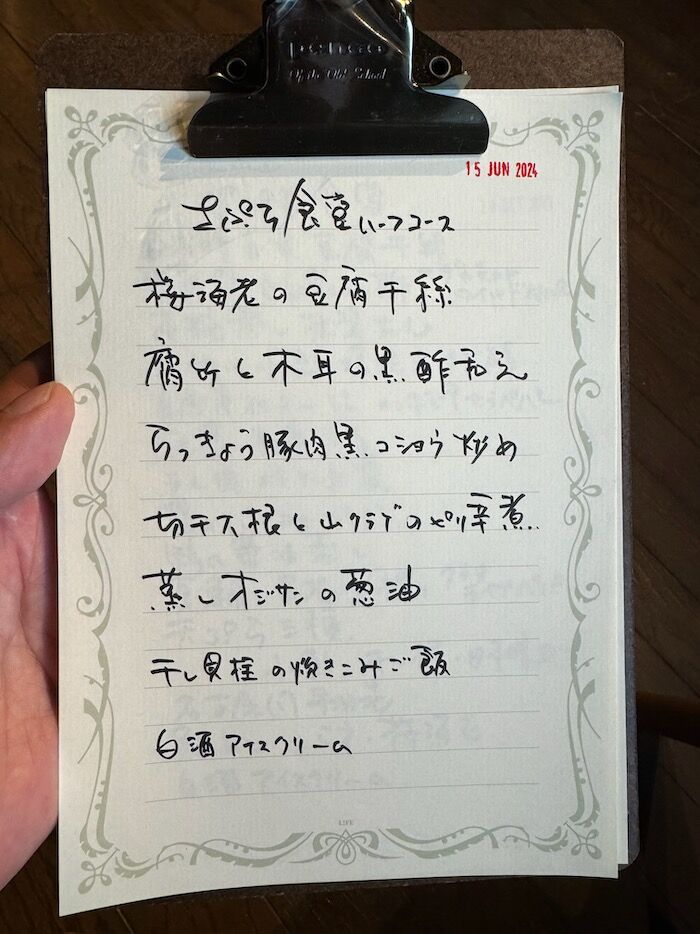 penco
Of the Old School
15 JUN 2024
食堂ハーフコース
桜海老の豆腐干絲
腐竹と木耳の黒酢和え
らっきょう豚肉黒コショウ炒め
切干大根と山クラゲのピリ辛煮
蒸しオジサンの葱油
干し貝柱の炊きこみご飯
白酒アイスクリーム
LIFE